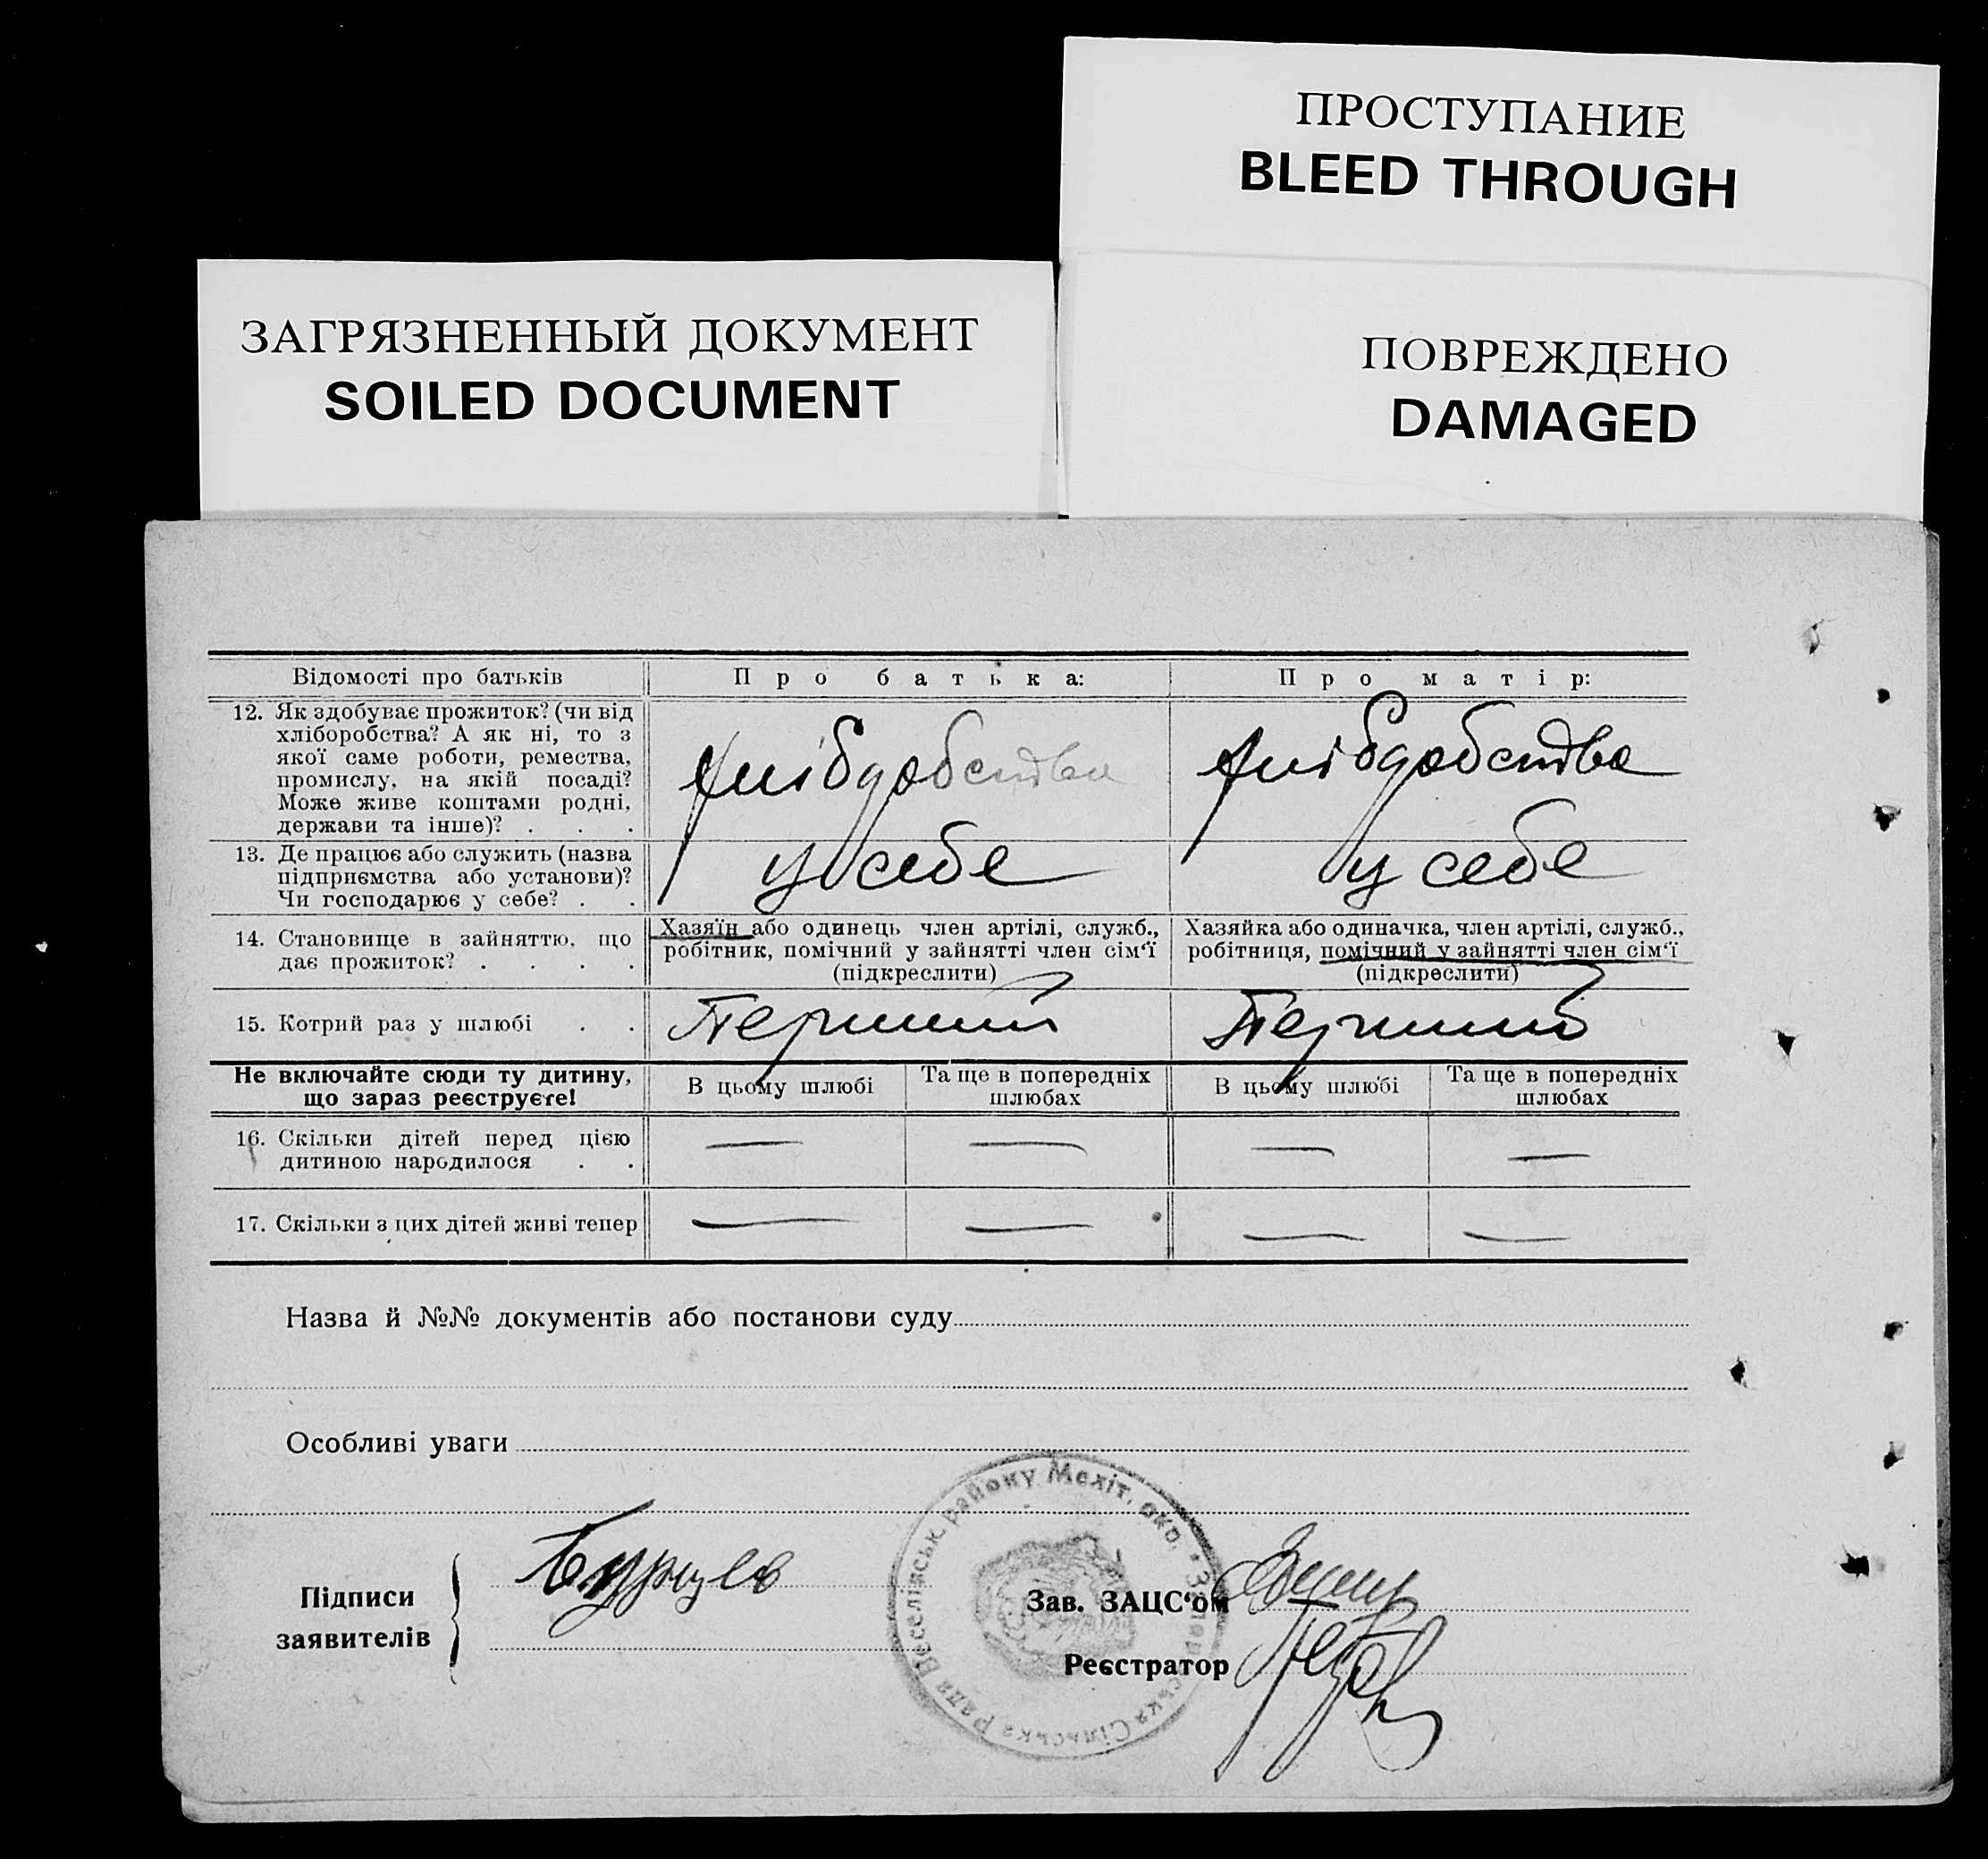 ПРОСТУПАНИЕ
BLEED THROUGH
ЗАГРЯЗНЕННЫЙ ДОКУМЕНТ
SOILED DOCUMENT
ПОВРЕЖДЕНО
DAMAGED
Відомості про батьків
Про батька:
Про матір:
12. Як здобуває прожиток? (чи від
хліборобства? А як ні, то з
якої саме роботи, ремества,
промислу, на якій посаді?
Може живе коштами родні,
держави та інше)? . . .
13. Де працює або служить (назва
підприємства або установи)?
Чи господарює у себе? . .
у себе
у себе
14. Становище в зайняттю, що
дає прожиток? . . . .
Хазяїн або одинець член артілі, служб.,
робітник, помічний у зайнятті член сім‘ї
(підкреслити)
Хазяйка або одиначка, член артілі, служб.,
робітниця, помічний у зайнятті член сім‘ї
(підкреслити)
15. Котрий раз у шлюбі . .
Перший
Перший
Не включайте сюди ту дитину,
що зараз реєструєте!
В цьому шлюбі
Та ще в попередніх
шлюбах
В цьому шлюбі
Та ще в попередніх
шлюбах
16. Скільки дітей перед цією
дитиною народилося . .
— — — —
17. Скільки з цих дітей живі тепер
— — — —
Назва й №№ документів або постанови суду
Особливі уваги
Сільська Рада Веселівськ. району Меліт. окр.
Підписи
заявителів
Бурцев
Зав. ЗАЦС‘ом
Реєстратор